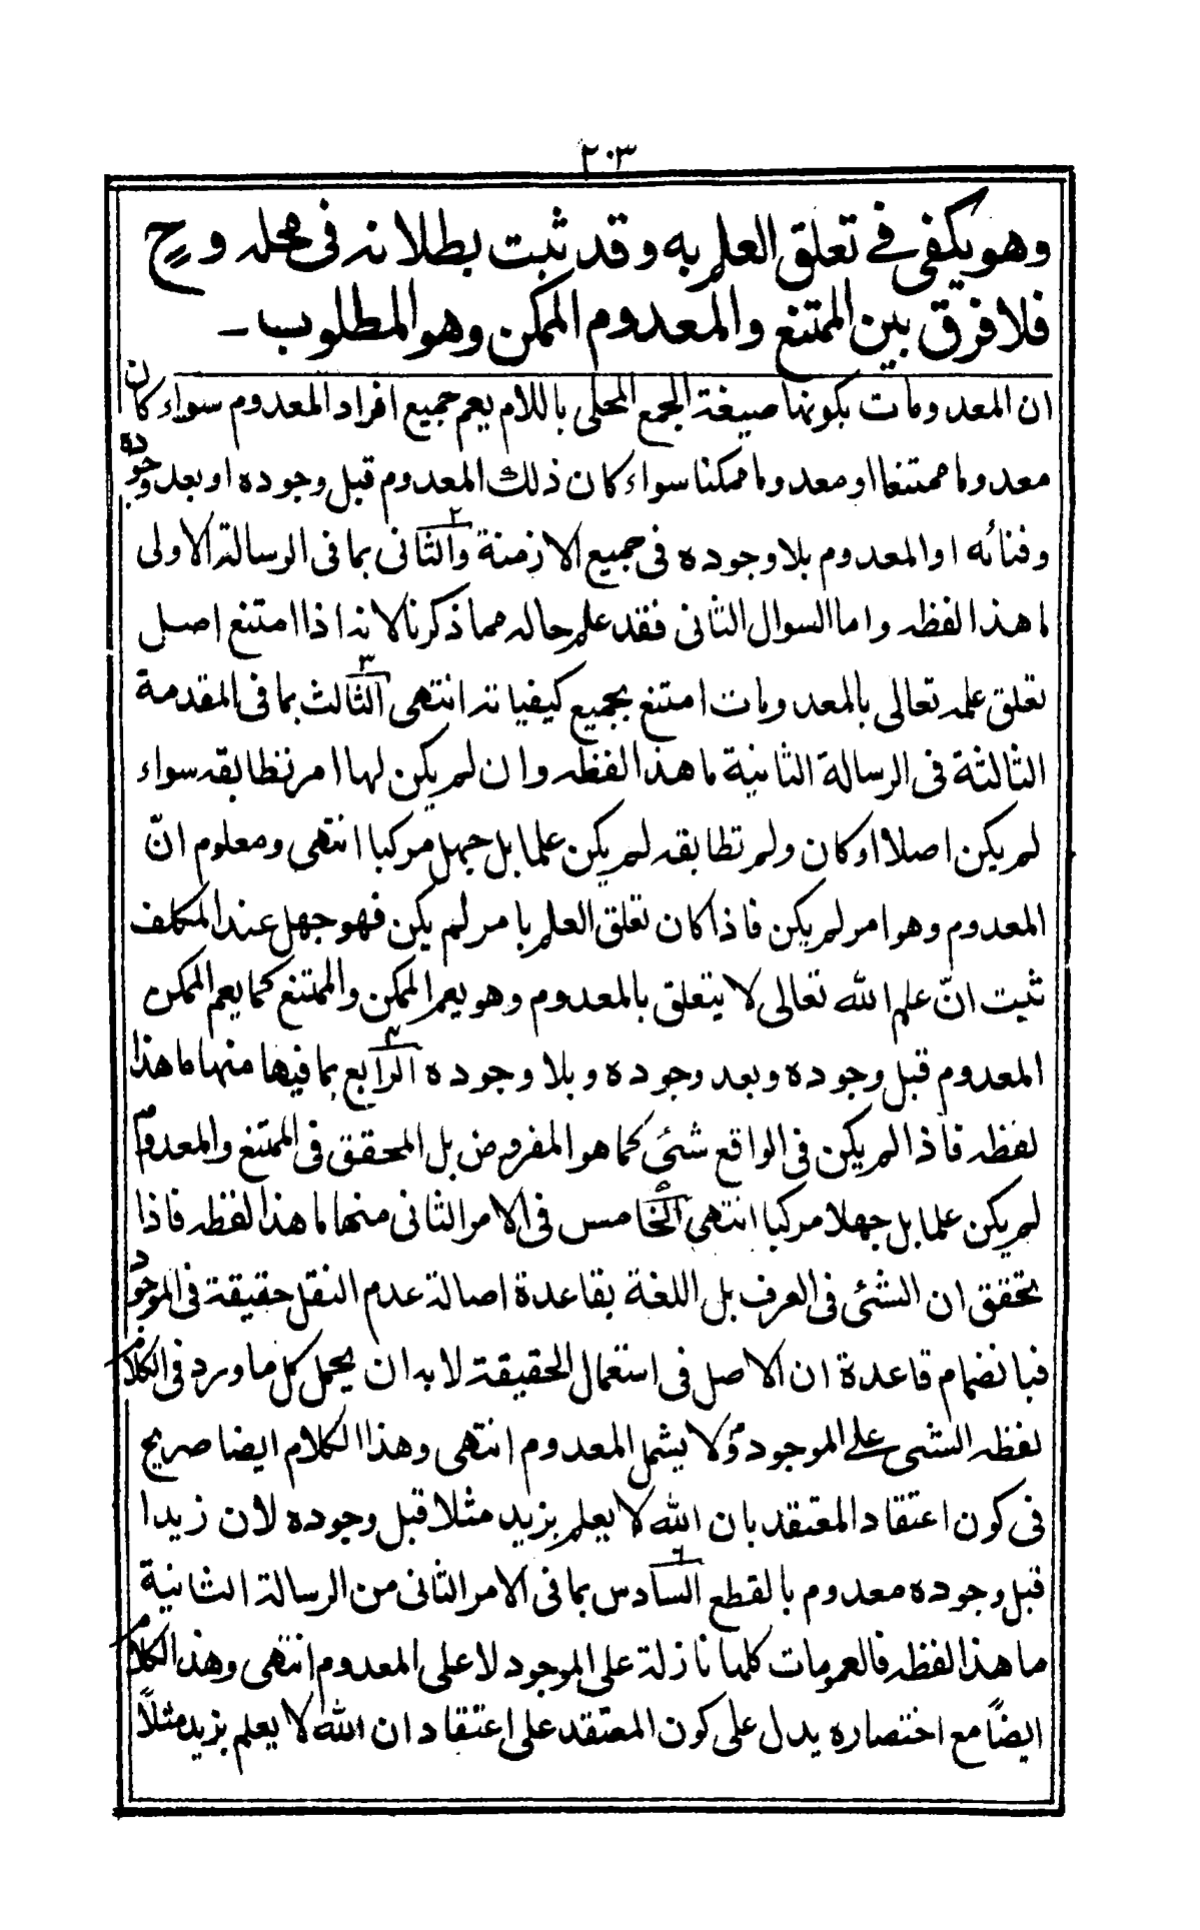 ٢٠٣
وهو يكفى فے تعلق العلم به وقد ثبت بطلانه فى محله وح
فلا فرق بين الممتنع والمعدوم الممكن وهو المطلوب ـ
ان المعدومات بكونها صيغة الجمع المحلى باللام يعم جميع افراد المعدوم سواء كان
معدوما ممتنعا او معدوما ممكنا سواء كان ذلك المعدوم قبل وجوده او بعد وجوده
وفنائه او المعدوم بلا وجوده فى جميع الازمنة والثانى ٢ بما فى الرسالة الاولى
ما هذا لفظه واما السوال الثانى فقد علم حاله مما ذكرنا لانه اذا امتنع اصل
تعلق علمه تعالى بالمعدومات امتنع بجميع كيفياته انتهى الثالث ٣ بما فى المقدمة
الثالثة فى الرسالة الثانية ما هذا لفظه وان لم يكن لها امر تطابقه سواء
لم يكن اصلا او كان ولم تطابقه لم يكن علما بل جهل مركبا انتهى ومعلوم انّ
المعدوم وهو امر لم يكن فاذا كان تعلق العلم بامر لم يكن فهو جهل عند المكلف
ثبت انّ علم الله تعالى لا يتعلق بالمعدوم وهو يعم الممكن والممتنع كما يعم الممكن
المعدوم قبل وجوده وبعد وجوده وبلا وجوده الرابع ٤ بما فيها منها ما هذا
لفظه فاذا لم يكن فى الواقع شئى كما هو المفروض بل المحقق فى الممتنع والمعدوم
لم يكن علما بل جهلا مركبا انتهى الخامس ٥ فى الامر الثانى منها ما هذا لفظه فاذا
تحقق ان الشئى فى العرف بل اللغة بقاعدة اصالة عدم النقل حقيقة فى الموجود
فبانضمام قاعدة ان الاصل فى استعمال الحقيقة لابد ان يحمل كل ما ورد فى الكلام
لفظه الشئى على الموجود ولا يشمل المعدوم انتهى وهذا الكلام ايضا صريح
فى كون اعتقاد المعتقد بان الله لا يعلم بزيد مثلا قبل وجوده لان زيدا
قبل وجوده معدوم بالقطع السادس ٦ بما فى الامر الثانى من الرسالة الثانية
ما هذا لفظه فالعمومات كلها نازلة على الموجود لا على المعدوم انتهى وهذا الكلام
ايضاً مع اختصاره يدل على كون المعتقد على اعتقاد ان الله لا يعلم بزيد مثلاً